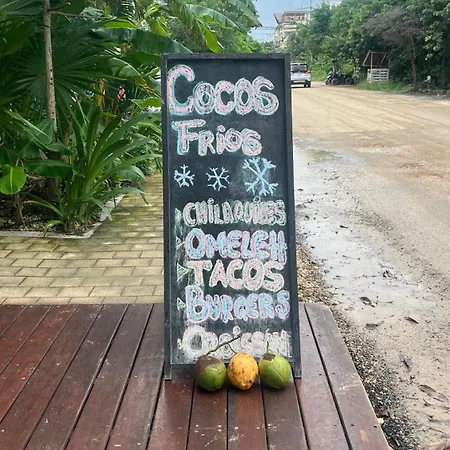 Cocos
Frios
CHILAQUILES
OMELEH
TACOS
BURGERS
CROISSAN